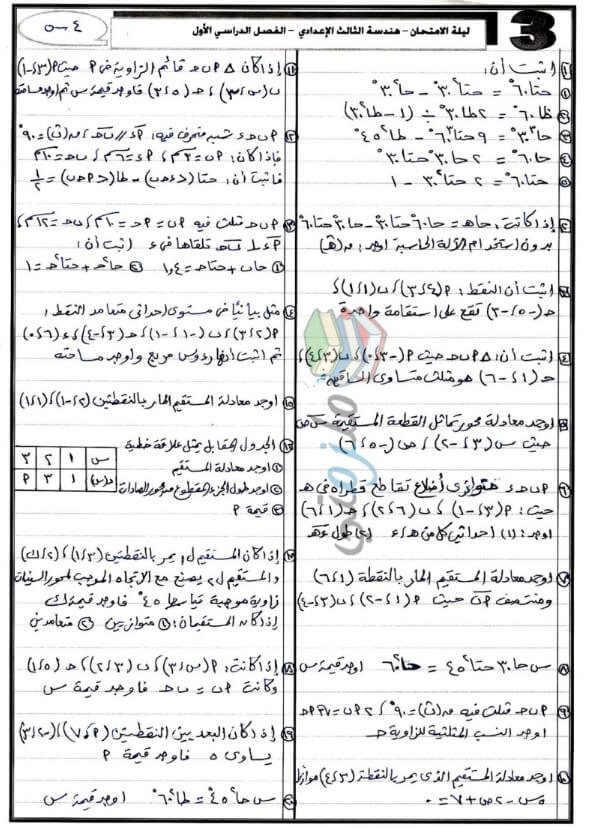 ليلة الامتحان – هندسة الثالث الإعدادي – الفصل الدراسي الأول
3
٤ س
اثبت أن:
① حتا ٦٠° = حتا² ٣٠° - حا² ٣٠°
② ظا ٦٠° = ٢ طا ٣٠° ÷ (١ - طا² ٣٠°)
③ حا³ ٣٠° = ٩ حتا³ ٦٠° - طا² ٤٥°
④ حا ٦٠° = ٢ حا ٣٠° حتا ٣٠°
⑤ حتا ٦٠° = ٢ حتا² ٣٠° - ١
إذا كانت: حا هـ = حا ٦٠° حتا ٣٠° - حا ٣٠° حتا ٦٠°
بدون استخدام الآلة الحاسبة اوجد: م (هـ)
اثبت أن النقط: P (٤ ، ٣) ، ب (١ ، ١) ،
حـ (-٥ ، -٣) تقع على استقامة واحدة
اثبت أن: Δ P ب حـ حيث P (-٣ ، ٠) ، ب (٣ ، ٤) ،
حـ (١ ، -٦) هو مثلث متساوى الساقين
اوجد معادلة محور تماثل القطعة المستقيمة س ص
حيث س (٣ ، -٢) ، ص (-٥ ، ٦)
P ب حـ ء متوازى أضلاع تقاطع قطراه فى هـ
حيث: P (٣ ، -١) ، ب (٦ ، ٢) ، حـ (١ ، ٦)
اوجد: (١) احداثيى كل من هـ ، ء (٢) طول ء هـ
اوجد معادلة المستقيم المار بالنقطة (١ ، ٦)
ومنتصف P ب حيث P (١ ، -٢) ، ب (٣ ، -٤)
س حا ٣٠° حتا² ٤٥° = حا² ٦٠° اوجد قيمة س
P ب حـ مثلث فيه م (ب) = ٩٠° ،
اوجد النسب المثلثية للزاوية حـ
اوجد معادلة المستقيم الذى يمر بالنقطة (٣ ، ٤)
س - ٢ ص + ٧ = ٠
إذا كان Δ P ب حـ قائم الزاوية فى P حيث P (٣ ، -١)
ب (س ، ٣) ، حـ (٥ ، ٣) فاوجد قيمة س ثم اوجد مساحته
P ب حـ ء شبه منحرف فيه: P ء // ب حـ ، م (ب) = ٩٠°
فإذا كان: P ب = ٣ سم ، P ء = ٦ سم ، ب حـ = ١٠ سم
فاثبت أن: حتا (ء حـ ب) - طا (P حـ ب) = ١/٢
P ب حـ مثلث فيه P ب = P حـ = ١٠ سم ، ب حـ = ١٢ سم
P ء ⊥ ب حـ يقطعها فى ء اثبت أن:
① حا ب + حتا حـ = ١,٤ ② حا² حـ + حتا² حـ = ١
مثل بيانيًا فى مستوى احداثى متعامد النقط:
P (٣ ، ٢) ، ب (-١ ، -١) ، حـ (٣ ، -٤) ، ء (٦ ، ٠)
ثم اثبت انها رؤوس مربع واوجد مساحته
اوجد معادلة المستقيم المار بالنقطتين (٢ ، -١) ، (١ ، ١)
الجدول المقابل يمثل علاقة خطية
① اوجد معادلة المستقيم
② اوجد طول الجزء المقطوع من محور الصادات
③ قيمة P
س ١ ٢ ٣
د(س) ١ ٣ P
إذا كان المستقيم ل١ يمر بالنقطتين (٣ ، ١) ، (٢ ، ك)
والمستقيم ل٢ يصنع مع الاتجاه الموجب لمحور السينات
زاوية موجبة قياسها ٤٥° فاوجد قيمة ك
إذا كان المستقيمان: ① متوازيين ② متعامدين
إذا كانت: P (س ، ٣) ، ب (٣ ، ٢) ، حـ (٥ ، ١)
وكانت P ب = ب حـ فاوجد قيمة س
إذا كان البعد بين النقطتين (P ، ٧) ، (-٢ ، ٣)
يساوى ٥ فاوجد قيمة P
س حا² ٤٥° = طا² ٦٠° اوجد قيمة س
ملزمتى